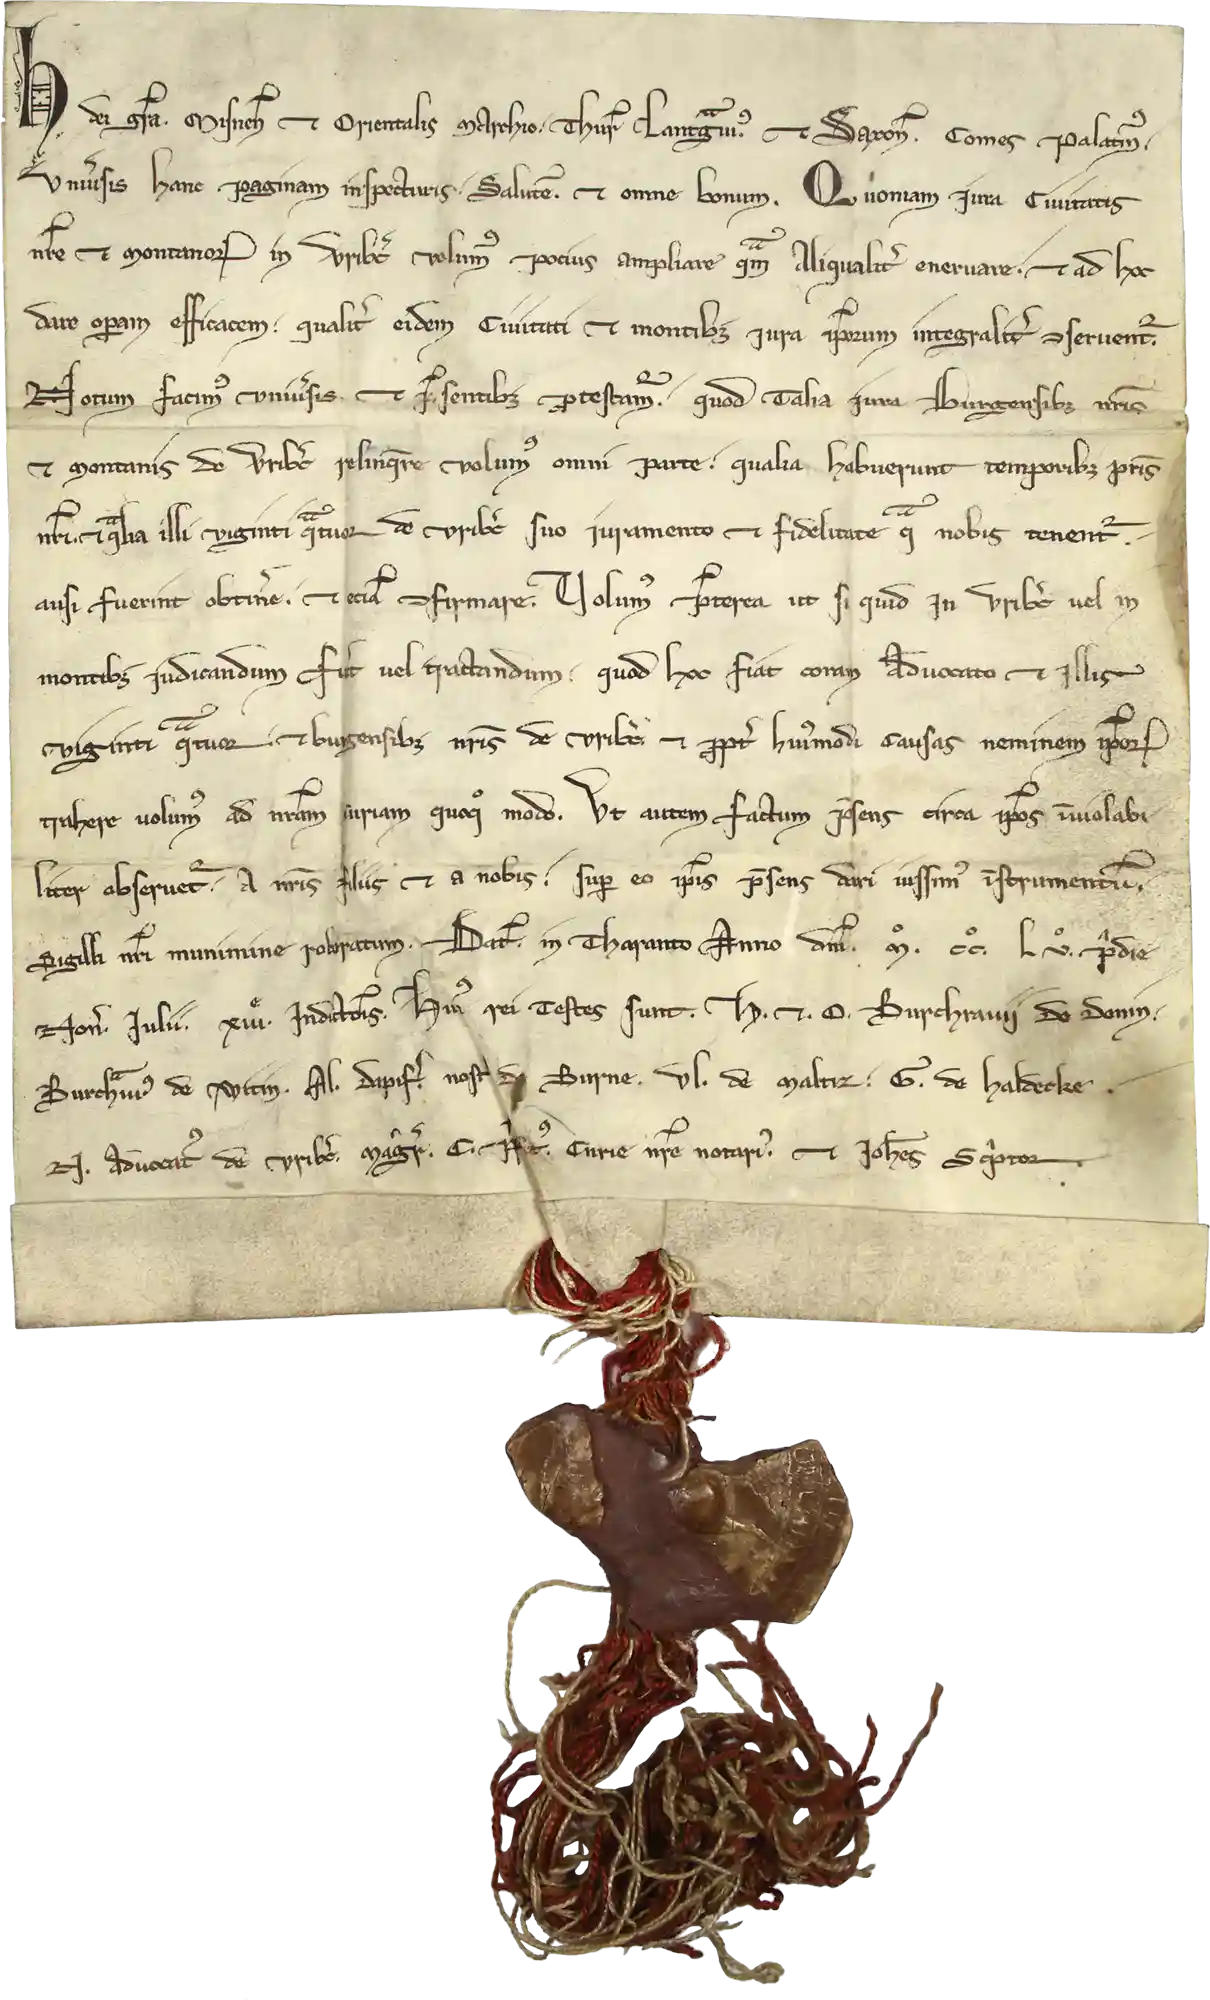 H. dei gr̄a. Misneñ ⁊ Orientalis Marchio. Thur̄ Lantgᵃuiꝰ. ⁊ Saxoñ. Comes Palatinꝰ.
Vniu̓sis hanc paginam inspecturis. Salutē. ⁊ omne bonum. Quoniam iura Ciuitatis
nr̄e ⁊ montanoꝝ in vriberc̓ volumꝰ pocius ampliare qᵃm Aliqualit̓ eneruare. ⁊ ad hoc
dare oꝑam efficacem. qualit̓ eidem Ciuitati ⁊ montibꝫ iura ip̄orum integralit̓ ꝯseruent᷑.
Notum facimꝰ vniu̓sis. ⁊ p̄sentibꝫ ꝓtestam᷑. quod Talia iura Burgensibꝫ nr̄is
⁊ montanis de vriberc̓ relinqͣre volumꝰ omni parte. qualia habuerunt temporibꝫ pr̄is
nr̄i. ⁊ qᵃlia illi viginti qᵃtuor de vriberc̓ suo iuramento ⁊ fidelitate qᵃ nobis tenent᷑.
ausi fuerint obtin̓e. ⁊ eciā ꝯfirmare. Volumꝰ p̄terea ut si quid in vriberc̓ uel in
montibꝫ iudicandum fu̓it uel tractandum. quod hoc fiat coram Aduocato ⁊ illis
viginti qᵃtuor. ⁊ burgensibꝫ nr̄is de vriberc̓. ⁊ ꝓpt̓ huiꝰmodi causas neminem ip̄oꝝ
trahere uolumꝰ ad nr̄am curiam quoqͦ modo. Vt autem factum p̄sens circa ip̄os īuiolabi
liter obseruet᷑. A nr̄is filiis ⁊ a nobis. suꝑ eo ip̄is p̄sens dari iussimꝰ īstrumentū.
Sigilli nr̄i munimine roboratum. Dat̄. in Tharanto Anno dn̄i. Mͦ. CCͦ. L Vͦ. p̓die
Noñ. Iulii. xiiiᵉ. Indictōis. Huiꝰ rei Testes sunt. H. ⁊. O. Burchrauii de Donin.
Burchᵃuiꝰ de Witin. Al. dapif̓. nost̓ de Burne. Vl. de Maltiz. G. de haldecke.
N. Aduocatꝰ de vriberc̓. Mag̓r̄. C. p̄ositꝰ. Curie nr̄e notariꝰ. ⁊ Ioh̄es Sc̓ptor.